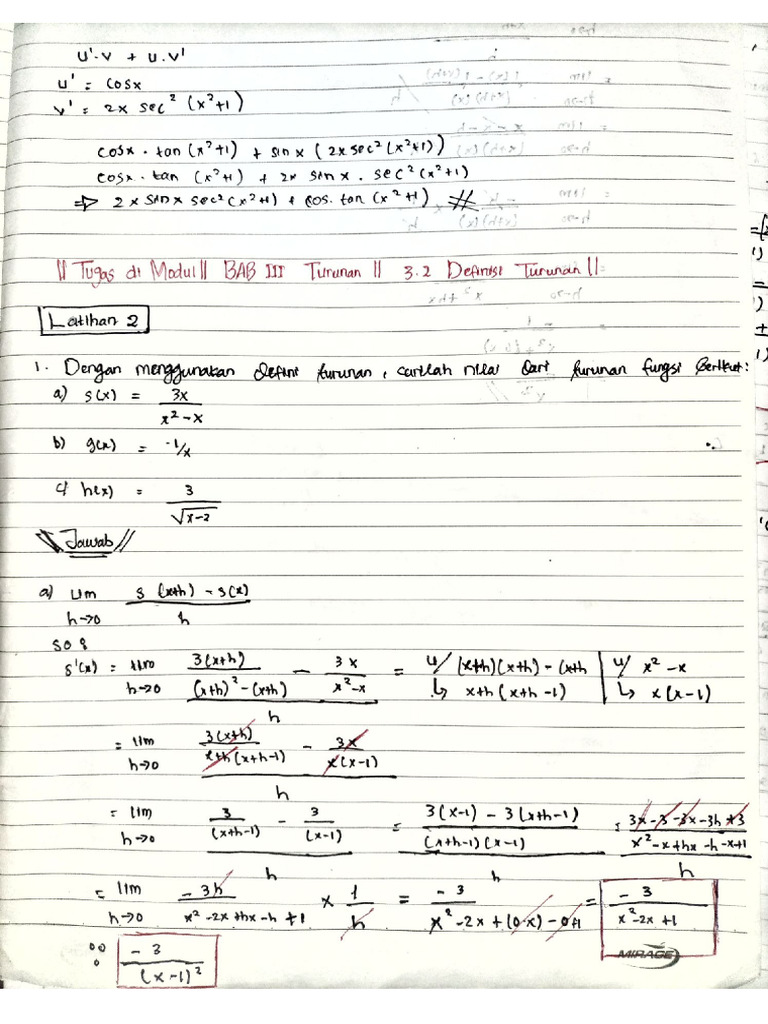 u'.v + u.v'
u' = cosx
v' = 2x sec² (x²+1)
cosx . tan (x²+1) + sinx (2x sec² (x²+1))
cosx . tan (x²+1) + 2x sinx . sec² (x²+1)
=> 2x sinx sec² (x²+1) + cos. tan (x²+1) #
|| Tugas di Modul || BAB III Turunan || 3.2 Definisi Turunan ||
Latihan 2
1. Dengan menggunakan defini turunan, carilah nilai dari turunan fungsi berikut:
a) s(x) = 3x / x² - x
b) g(x) = -1/x
c) h(x) = 3 / √x-2
\\ Jawab //
a) lim h→0 s(x+h) - s(x) / h
so :
s'(x) = lim h→0 3(x+h) / (x+h)² - (x+h) - 3x / x²-x / h = u/ (x+h)(x+h) - (x+h ↳ x+h (x+h-1) | u/ x² - x ↳ x(x-1)
= lim h→0 3(x+h) / x+h (x+h-1) - 3x / x(x-1) / h
= lim h→0 3 / (x+h-1) - 3 / (x-1) / h = 3(x-1) - 3(x+h-1) / (x+h-1)(x-1) / h = 3x-3-3x-3h+3 / x²-x+hx-h-x+1 / h
= lim h→0 -3h / x²-2x+hx-h+1 × 1/h = -3 / x²-2x+(0.x)-0+1 = -3 / x²-2x+1
∴ -3 / (x-1)²
MIRAGE